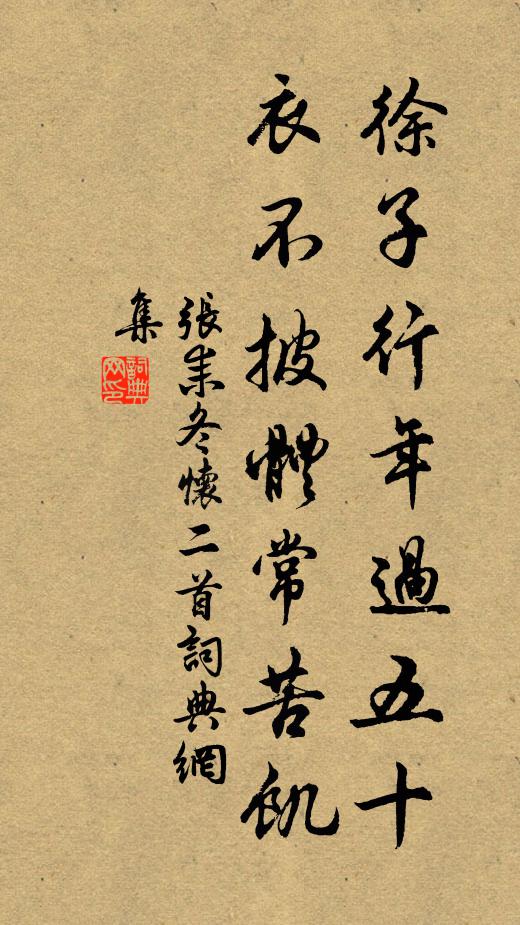 徐子行年過五十
衣不披體常苦飢
張耒冬懷二首詞典網
集
詞典
网印